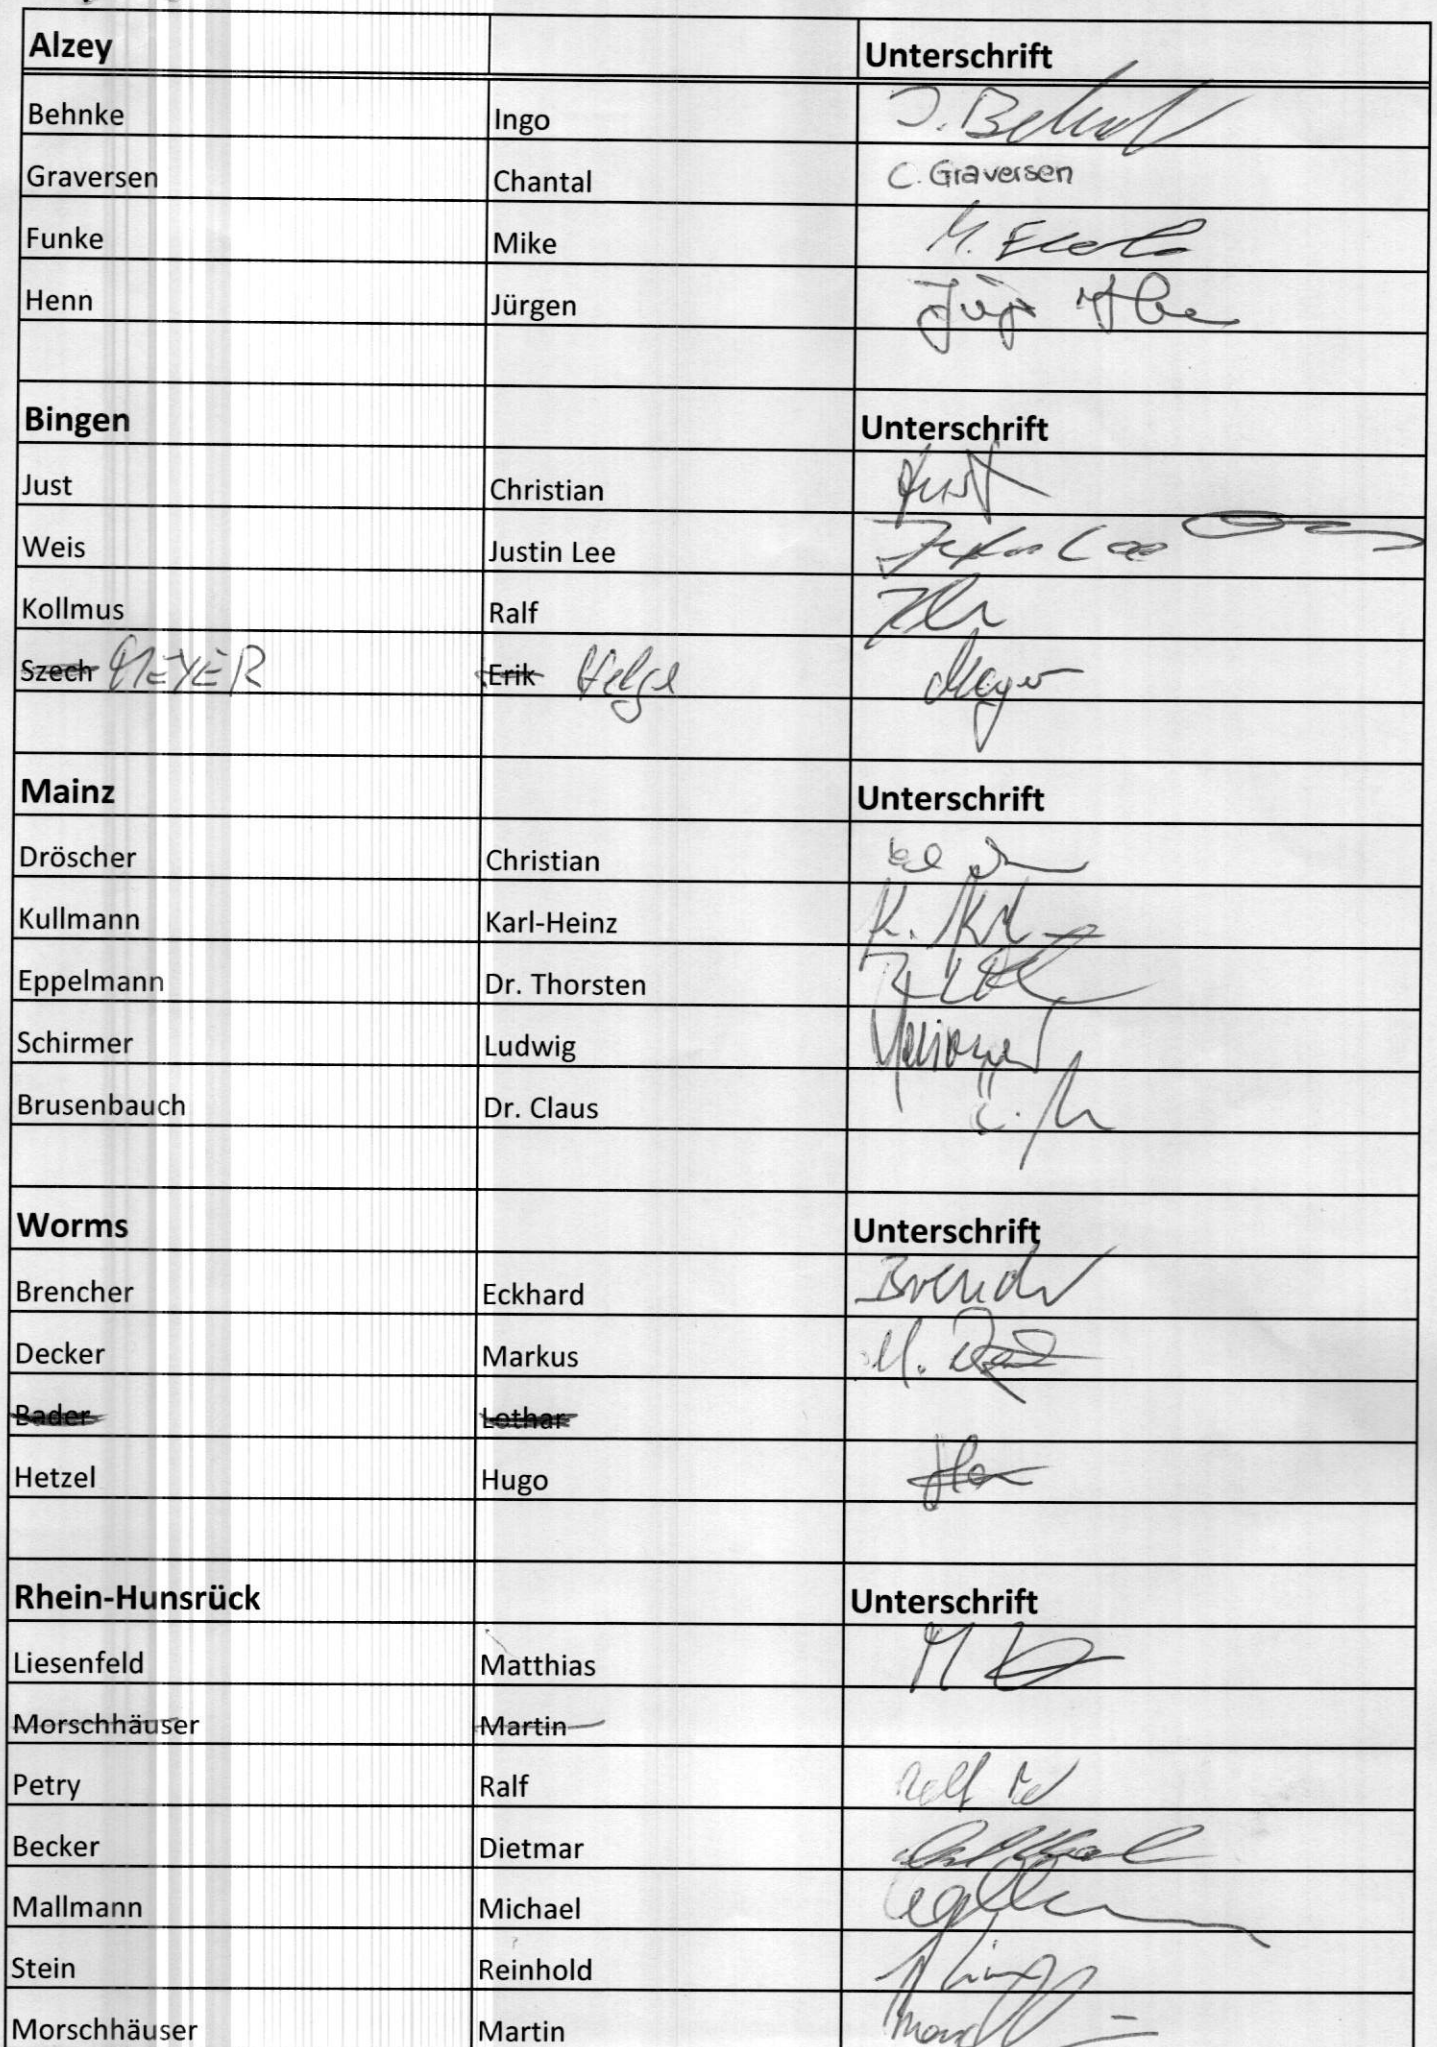 Alzey Unterschrift
Behnke Ingo J.
Graversen Chantal C. Graversen
Funke Mike M.
Henn Jürgen
Bingen Unterschrift
Just Christian Just
Weis Justin Lee Justin Lee
Kollmus Ralf
Szech MEYER Erik Helge Meyer
Mainz Unterschrift
Dröscher Christian
Kullmann Karl-Heinz K.
Eppelmann Dr. Thorsten
Schirmer Ludwig
Brusenbauch Dr. Claus
Worms Unterschrift
Brencher Eckhard
Decker Markus M.
Bader Lothar
Hetzel Hugo
Rhein-Hunsrück Unterschrift
Liesenfeld Matthias
Morschhäuser Martin
Petry Ralf Ralf
Becker Dietmar
Mallmann Michael
Stein Reinhold
Morschhäuser Martin